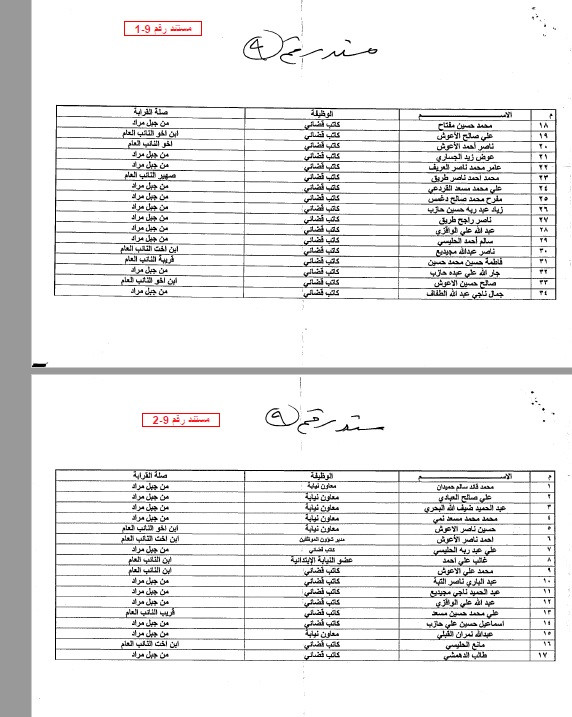 مستند رقم 9-1
مستند رقم (٩)
م الاســـــــم الوظيفة صلة القرابة
١٨ محمد حسين مفتاح كاتب قضائي من جبل مراد
١٩ علي صالح الأعوش كاتب قضائي ابن اخو النائب العام
٢٠ ناصر أحمد الأعوش كاتب قضائي اخو النائب العام
٢١ عوض زيد الجساري كاتب قضائي من جبل مراد
٢٢ عامر محمد ناصر العريف كاتب قضائي من جبل مراد
٢٣ محمد احمد ناصر طريق كاتب قضائي صهير النائب العام
٢٤ علي محمد مسعد القردعي كاتب قضائي من جبل مراد
٢٥ مفرح محمد صالح دغمس كاتب قضائي من جبل مراد
٢٦ زياد عبد ربه حسين حازب كاتب قضائي من جبل مراد
٢٧ ناصر راجح طريق كاتب قضائي من جبل مراد
٢٨ عبد الله علي الوافزي كاتب قضائي من جبل مراد
٢٩ سالم أحمد الحليسي كاتب قضائي من جبل مراد
٣٠ ناصر عبدالله مجيديع كاتب قضائي ابن اخت النائب العام
٣١ فاطمة حسين محمد حسين كاتب قضائي قريبة النائب العام
٣٢ جار الله علي عبده حازب كاتب قضائي من جبل مراد
٣٣ صالح حسين الاعوش كاتب قضائي ابن اخو النائب العام
٣٤ جمال ناجي عبد الله الطفاف كاتب قضائي من جبل مراد
مستند رقم 9-2
مستند رقم (٩)
م الاســـــــم الوظيفة صلة القرابة
١ محمد قائد سالم حميدان معاون نيابة من جبل مراد
٢ علي صالح العبادي معاون نيابة من جبل مراد
٣ عبد الحميد ضيف الله البحري معاون نيابة من جبل مراد
٤ محمد محمد مسعد نمي معاون نيابة من جبل مراد
٥ حسين ناصر الاعوش معاون نيابة ابن اخو النائب العام
٦ احمد ناصر الأعوش مدير شؤون الموظفين ابن اخت النائب العام
٧ علي عبد ربه الحليسي كاتب قضائي من جبل مراد
٨ غالب علي احمد عضو النيابة الإبتدائية ابن النائب العام
٩ محمد علي الاعوش كاتب قضائي ابن النائب العام
١٠ عبد الباري ناصر التبة كاتب قضائي من جبل مراد
١١ عبد الحميد ناجي مجيديع كاتب قضائي من جبل مراد
١٢ عبد الله علي الوافزي كاتب قضائي من جبل مراد
١٣ علي محمد حسين مسعد كاتب قضائي قريب النائب العام
١٤ اسماعيل حسين علي حازب كاتب قضائي من جبل مراد
١٥ عبدالله نمران القبلي معاون نيابة من جبل مراد
١٦ مانع الحليسي كاتب قضائي ابن اخت النائب العام
١٧ طالب الدهمشي كاتب قضائي من جبل مراد